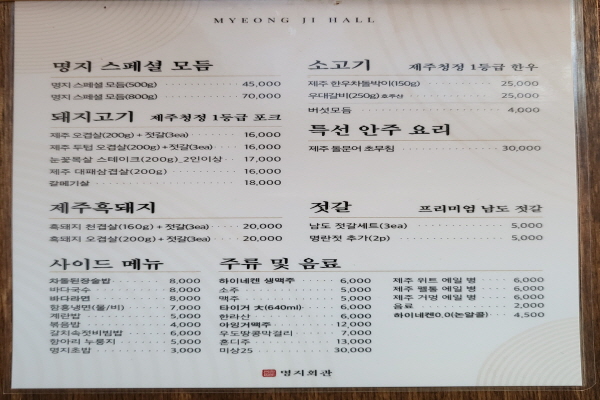 MYEONG JI HALL
명지 스페셜 모듬
명지 스페셜 모듬(500g) 45,000
명지 스페셜 모듬(800g) 70,000
돼지고기 제주청정 1등급 포크
제주 오겹살(200g) + 젓갈(3ea) 16,000
제주 두텁 오겹살(200g)+젓갈(3ea) 16,000
눈꽃목살 스테이크(200g)_2인이상 17,000
제주 대패삼겹살(200g) 16,000
갈매기살 18,000
제주흑돼지
흑돼지 천겹살(160g) + 젓갈(3ea) 20,000
흑돼지 오겹살(200g) + 젓갈(3ea) 20,000
사이드 메뉴
차돌된장술밥 8,000
바다국수 8,000
바다라면 8,000
함흥냉면(물/비) 7,000
계란밥 5,000
볶음밥 4,000
갈치속젓비빔밥 6,000
항아리 누룽지 5,000
명지초밥 3,000
소고기 제주청정 1등급 한우
제주 한우차돌박이(150g) 25,000
우대갈비(250g) 호주산 25,000
버섯모듬 4,000
특선 안주 요리
제주 돌문어 초무침 30,000
젓갈 프리미엄 남도 젓갈
남도 젓갈세트(3ea) 5,000
명란젓 추가(2p) 5,000
주류 및 음료
하이네켄 생맥주 6,000
소주 5,000
맥주 5,000
타이거 大(640ml) 6,000
한라산 6,000
아잉거맥주 12,000
우도땅콩막걸리 7,000
혼디주 13,000
미상25 30,000
제주 위트 에일 병 6,000
제주 펠롱 에일 병 6,000
제주 거멍 에일 병 6,000
음료 2,000
하이네켄0.0(논알콜) 4,500
명지회관